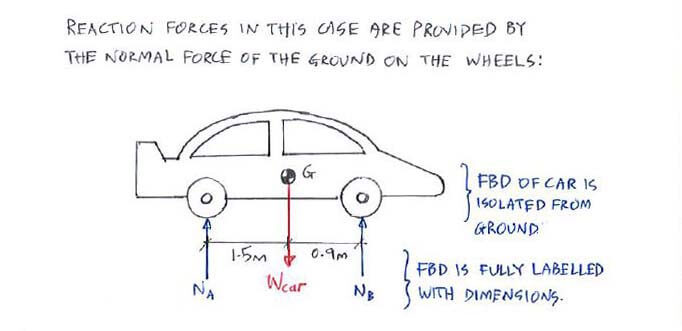 REACTION FORCES IN THIS CASE ARE PROVIDED BY
THE NORMAL FORCE OF THE GROUND ON THE WHEELS:
G
FBD OF CAR IS
ISOLATED FROM
GROUND.
1.5m
0.9m
Wcar
NA
NB
FBD IS FULLY LABELLED
WITH DIMENSIONS.